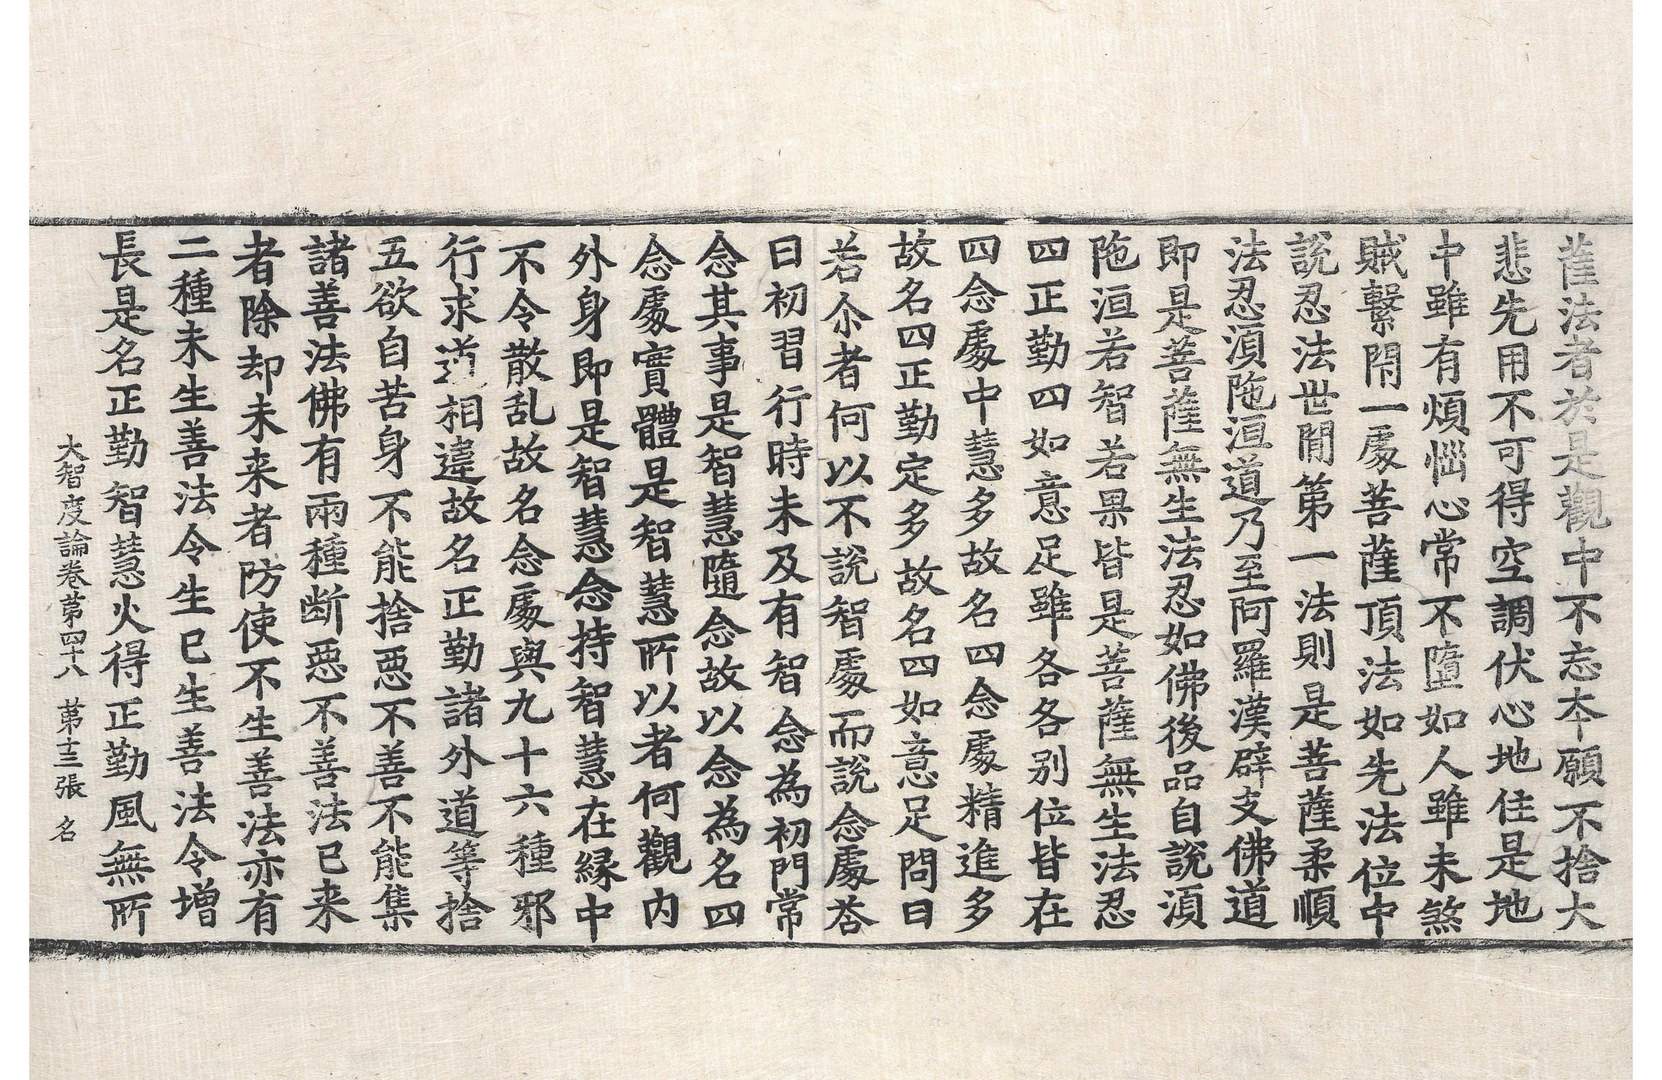 薩法者於是觀中不忘本願不捨大
悲先用不可得空調伏心地住是地
中雖有煩惱心常不墮如人雖未煞
賊繫閇一處菩薩頂法如先法位中
說忍法世閒第一法則是菩薩柔順
法忍湏陁洹道乃至阿羅漢辟支佛道
即是菩薩無生法忍如佛後品自說湏
陁洹若智若果皆是菩薩無生法忍
四正勤四如意足雖各各別位皆在
四念處中慧多故名四念處精進多
故名四正勤定多故名四如意足問曰
若尒者何以不說智處而說念處荅
曰初習行時未及有智念為初門常
念其事是智慧隨念故以念為名四
念處實體是智慧所以者何觀內
外身即是智慧念持智慧在緣中
不令散乱故名念處與九十六種邪
行求道相違故名正勤諸外道等捨
五欲自苦身不能捨惡不善不能集
諸善法佛有兩種断惡不善法已来
者除却未来者防使不生善法亦有
二種未生善法令生已生善法令增
長是名正勤智慧火得正勤風無所
大智度論卷第四十八 第十三張 名